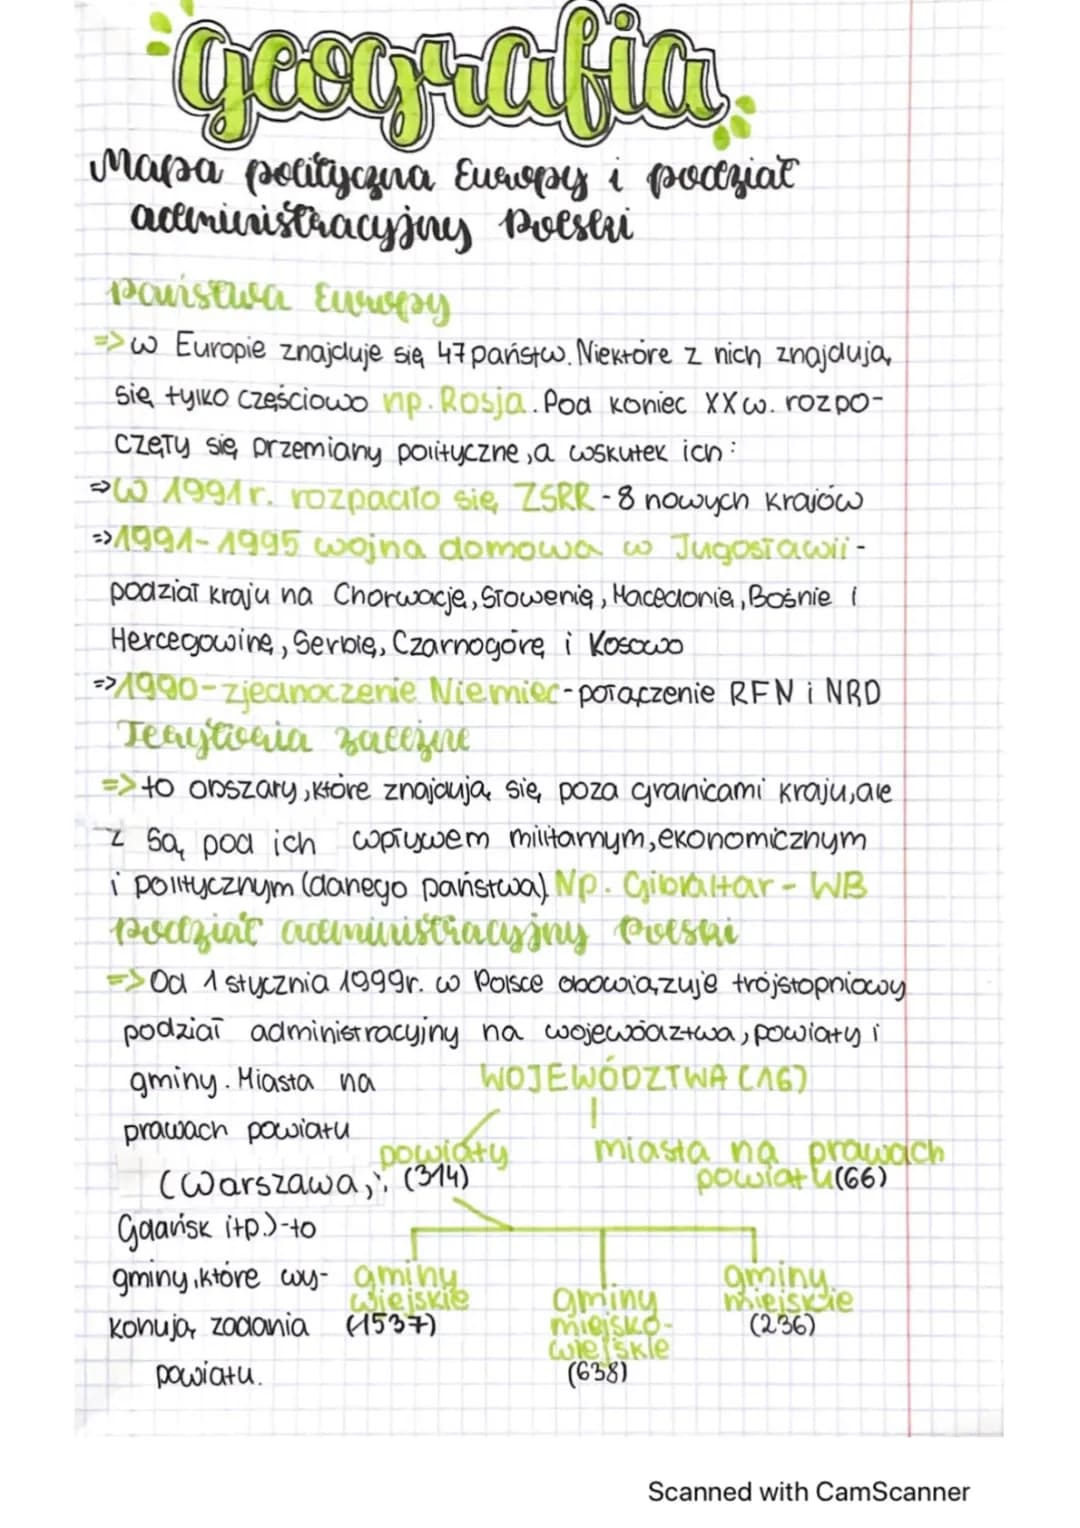 geografia
Mapa polityczna Europy i podział
administracyjny Polski
Państwa Europy
=> w Europie znajduje się 47 państw. Niektóre z nich znajdują
się tylko częściowo np. Rosja. Pod koniec XX w. rozpo-
częły się przemiany polityczne, a wskutek ich:
=> W 1991 r. rozpadło się ZSRR - 8 nowych krajów
=> 1991-1995 wojna domowa w Jugosławii -
podział kraju na Chorwację, Słowenię, Macedonię, Bośnie i
Hercegowinę, Serbię, Czarnogórę i Kosowo
=> 1990-zjednoczenie Niemiec-połączenie RFN i NRD
Terytoria zależne
=> to obszary, które znajdują się poza granicami kraju, ale
z są pod ich wpływem militarnym, ekonomicznym
i politycznym (danego państwa) Np. Gibraltar - WB
Podział administracyjny Polski
=> Od 1 stycznia 1999r. w Polsce obowiązuje trójstopniowy
podział administracyjny na województwa, powiaty i
gminy. Miasta na
prawach powiatu
(Warszawa,
Gdańsk itp.)-to
gminy, które wy-
konują zadania
powiatu.
WOJEWÓDZTWA (16)
powiaty
(314)
miasta na prawach
powiatu (66)
gminy
wiejskie
(1537)
gminy
miejsko-
wiejskie
(638)
gminy
miejskie
(236)
Scanned with CamScanner